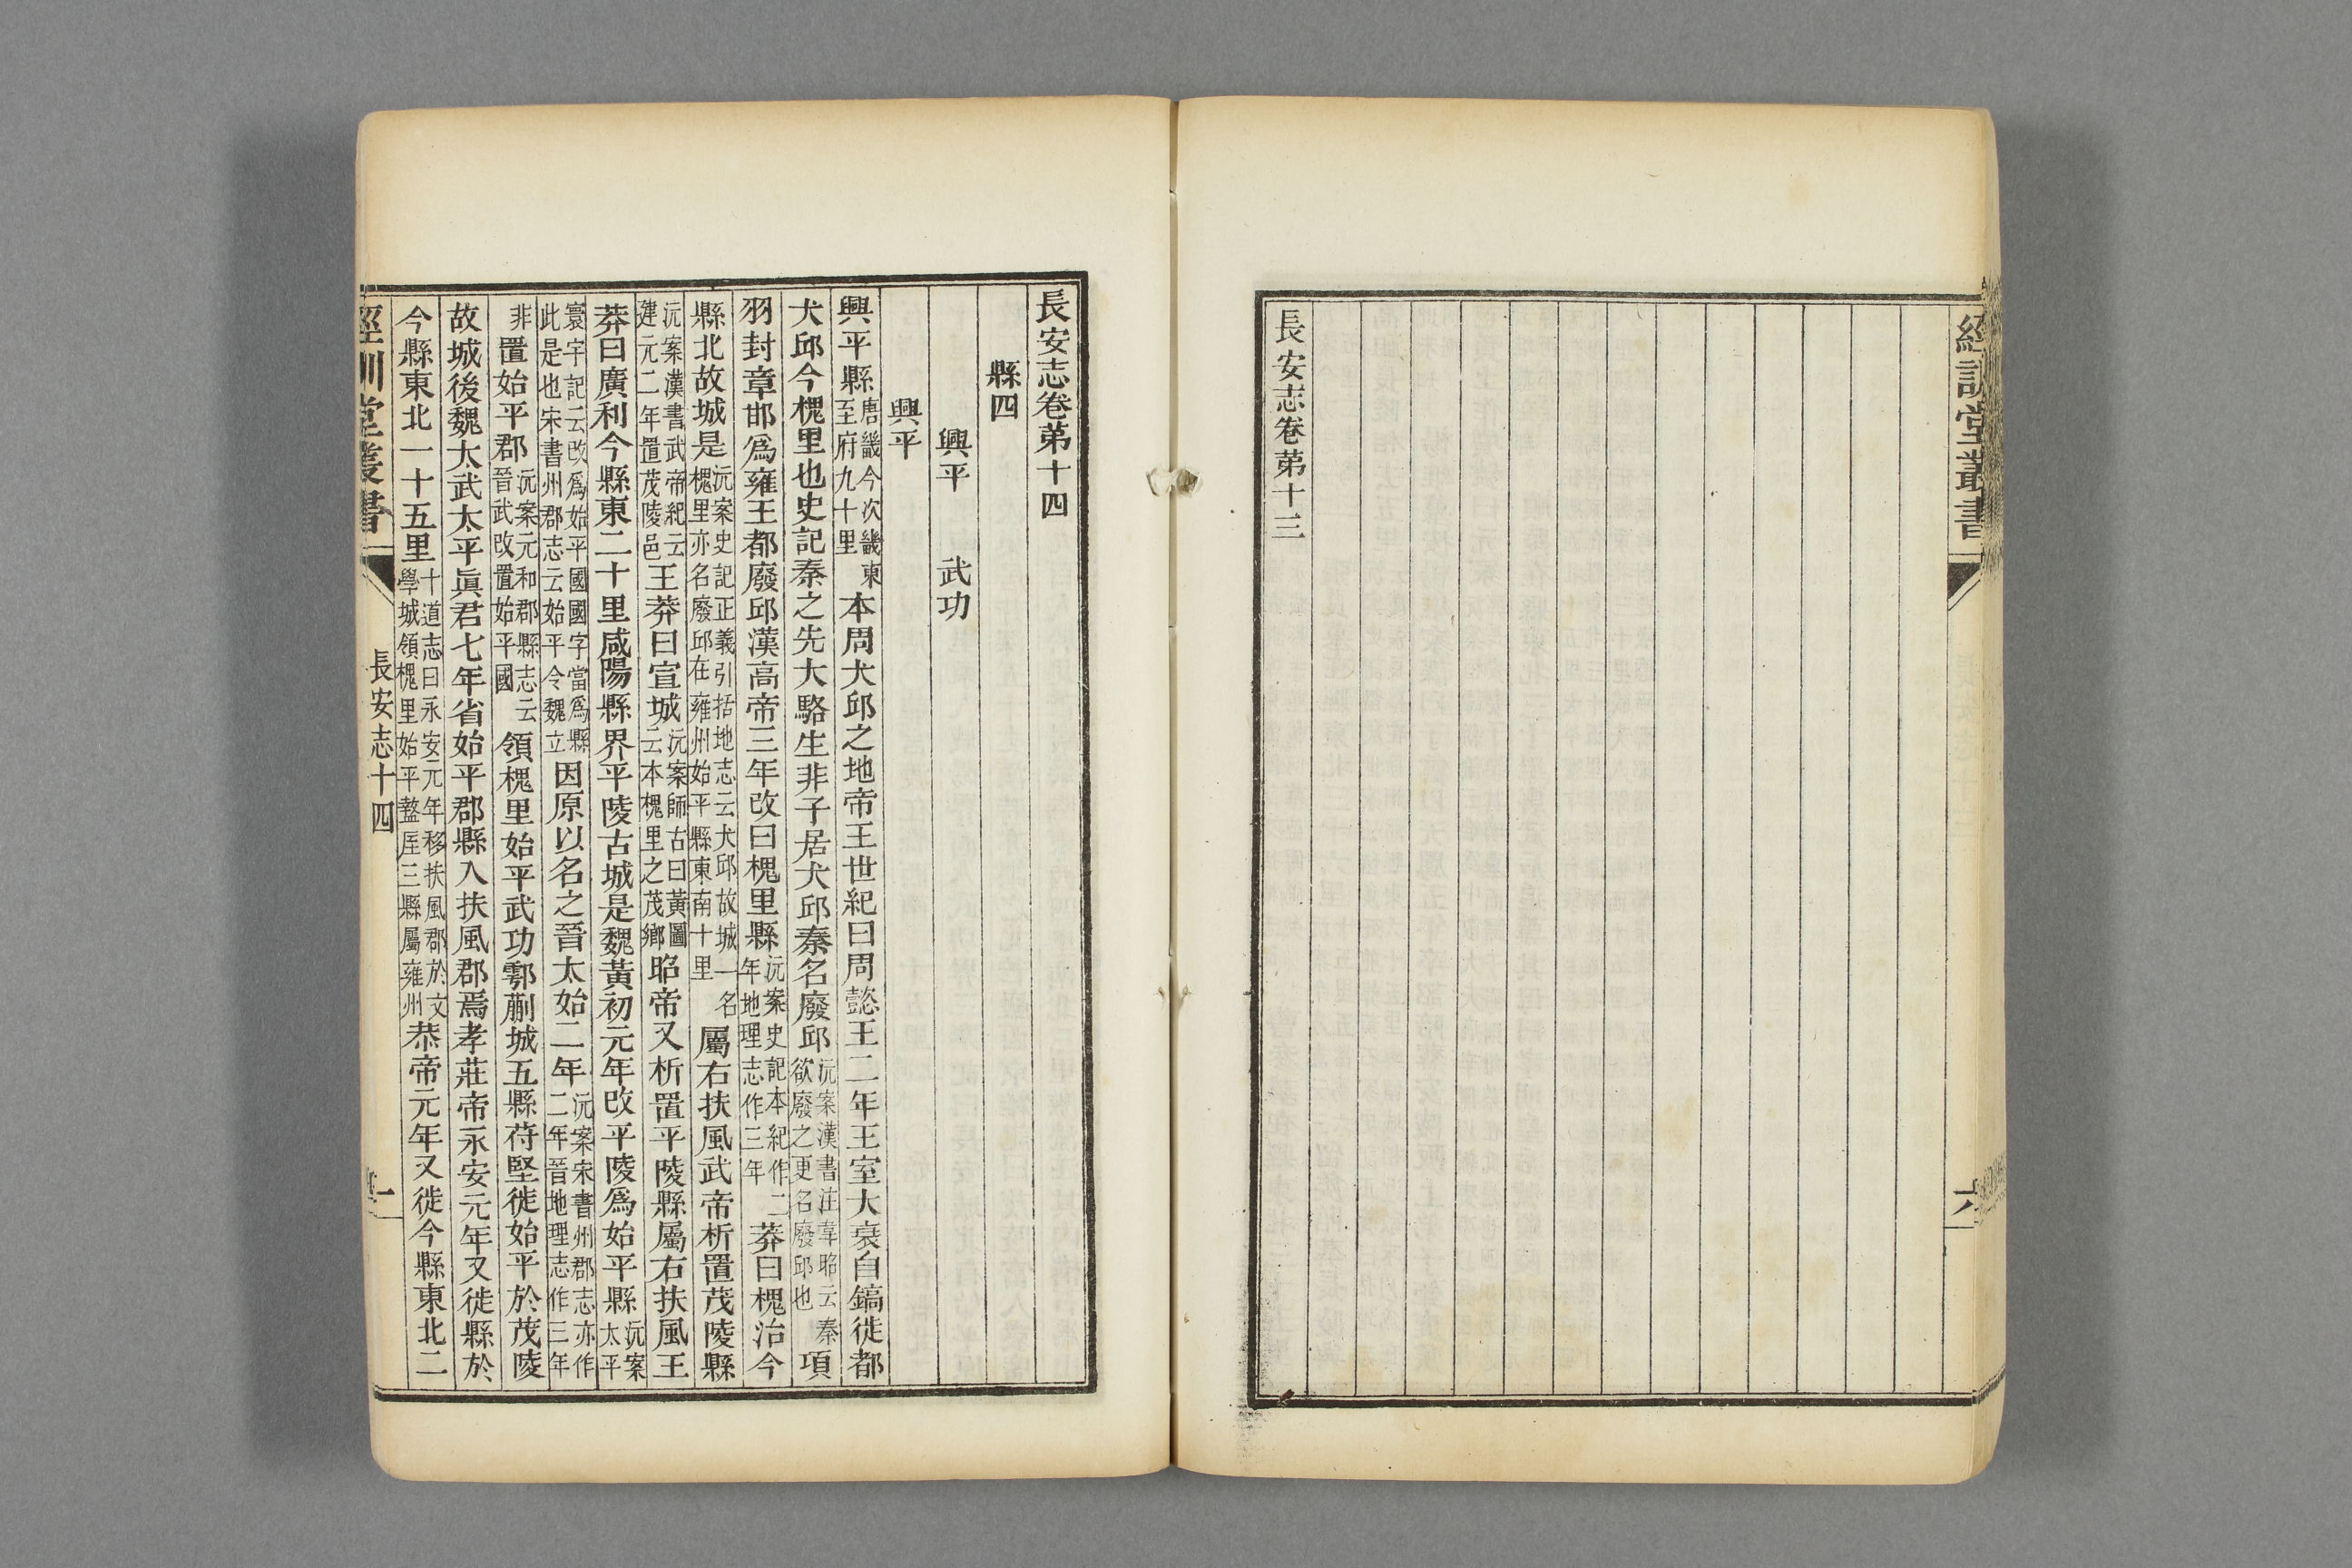 經訓堂叢書
六
長安志卷第十三
長安志卷第十四
縣四
興平 武功
興平
興平縣唐畿今次畿東至府九十里本周犬邱之地帝王世紀曰周懿王二年王室大衰自鎬徙都
犬邱今槐里也史記秦之先大駱生非子居犬邱秦名廢邱沅案漢書注韋昭云秦欲廢之更名廢邱也項
羽封章邯爲雍王都廢邱漢高帝三年改曰槐里縣沅案史記本紀作二年地理志作三年莽曰槐治今
縣北故城是沅案史記正義引括地志云犬邱故城一名槐里亦名廢邱在雍州始平縣東南十里屬右扶風武帝析置茂陵縣
沅案漢書武帝紀云建元二年置茂陵邑王莽曰宣城沅案師古曰黃圖云本槐里之茂鄉昭帝又析置平陵縣屬右扶風王
莽曰廣利今縣東二十里咸陽縣界平陵古城是魏黃初元年改平陵爲始平縣沅案太平
寰宇記云改爲始平國國字當爲縣此是也宋書州郡志云始平令魏立因原以名之晉太始二年沅案宋書州郡志亦作二年晉地理志作三年
非置始平郡沅案元和郡縣志云晉武改置始平國領槐里始平武功鄠蒯城五縣苻堅徙始平於茂陵
故城後魏太武太平眞君七年省始平郡縣入扶風郡焉孝莊帝永安元年又徙縣於
今縣東北一十五里十道志曰永安元年移扶風郡於文學城領槐里始平盩厔三縣屬雍州恭帝元年又徙今縣東北二
經訓堂叢書
長安志十四
一